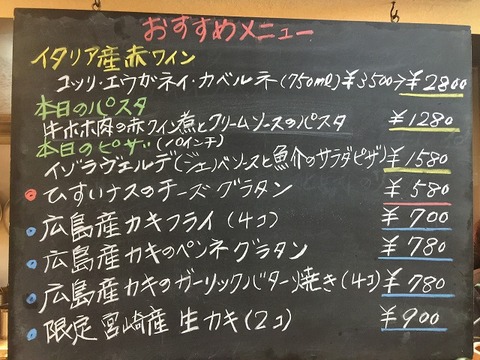 おすすめメニュー
イタリア産赤ワイン
コッリ・エウガネイ・カベルネ(750ml)¥3500→¥2800
本日のパスタ
牛ホホ肉の赤ワイン煮とクリームソースのパスタ ¥1280
本日のピザ(10インチ)
イゾラヴェルデ(ジェノベソースと魚介のサラダピザ)¥1580
ひすいナスのチーズグラタン ¥580
広島産カキフライ(4コ) ¥700
広島産カキのペンネグラタン ¥780
広島産カキのガーリックバター焼き(4コ) ¥780
限定 宮崎産 生カキ(2コ) ¥900